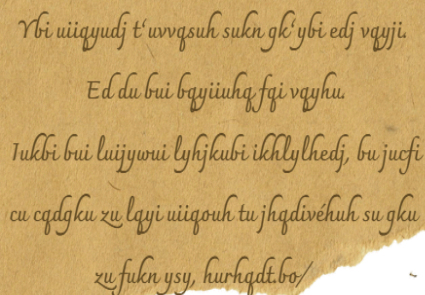 Ybi uiiqyudj t'uvvqsuh sukn gk'ybi edj vqyji.
Ed du bui bqyiiuhq fqi vqyhu.
Iukbi bui luijywui lyhjkubi ikhlylhedj, bu jucfi
cu cqdgku zu lqyi uiiqouh tu jhqdivéhuh su gku
zu fukn ysy, hurhqdt.bo/